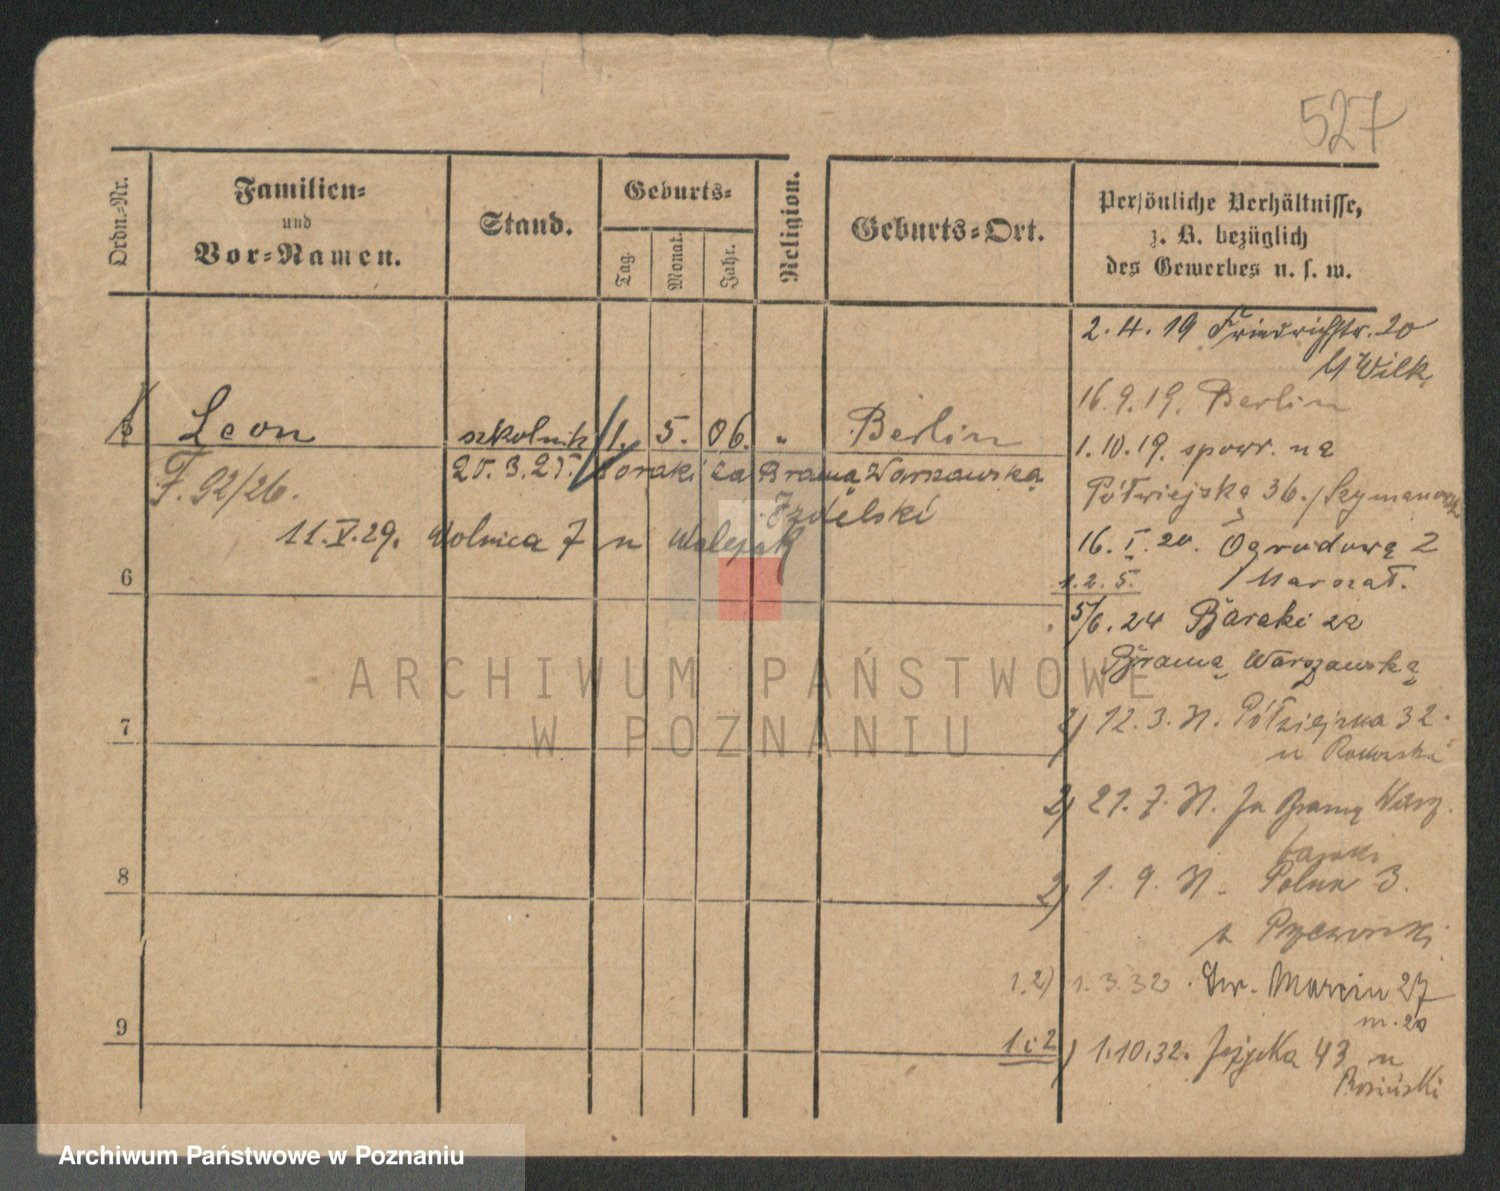 527
Ordn.=Nr.
Familien=
und
Vor=Namen.
Stand.
Geburts=
Tag.
Monat.
Jahr.
Religion.
Geburts=Ort.
Persönliche Verhältnisse,
z. B. bezüglich
des Gewerbes u. s. w.
2.4.19 Friedrichstr. 20
Wilk
16.9.19. Berlin
5 Leon szkolnik 1. 5. 06. " Berlin
1.10.19. spowr. na
20.3.25. Baraki za Bramą Warszawską
Półwiejską 36./Szymanowski
F. 92/26.
Izdelski
11.V.29. Wolnica 7 u Walejak
16.I.20. Ogrodową 2
6
1.2.5. / Marszał.
5/6.24 Baraki za
Bramą Warszawską
7
2) 12.3.31. Półwiejska 32.
u
2) 21.7.31. Za Bramą Warsz.
baraki
8
2) 1.9.31. Polna 3.
1.2) 1.3.32. Św. Marcin 27
m. 20
9
1 i 2) 1.10.32. Jeżycka 43 u
Rosiński
ARCHIWUM PAŃSTWOWE
W POZNANIU
Archiwum Państwowe w Poznaniu